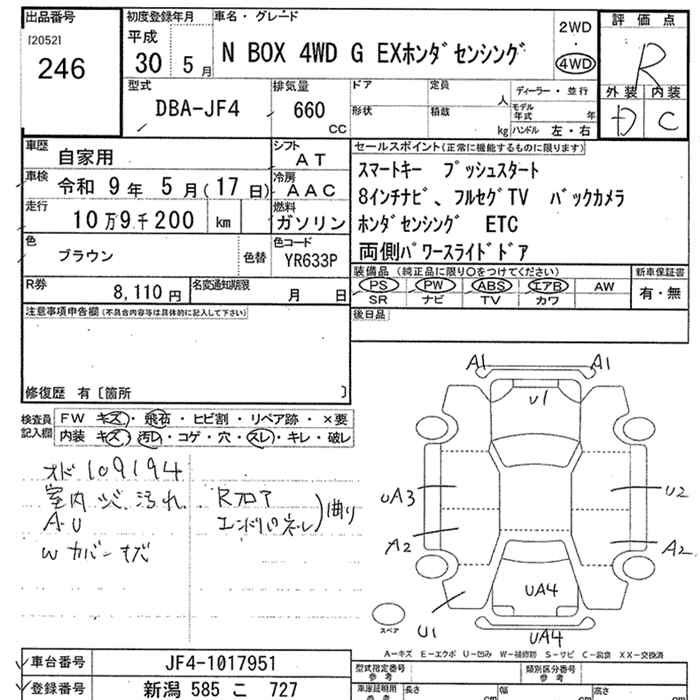 出品番号
[2052]
246
初度登録年月
平成
30 5 月
車名・グレード
N BOX 4WD G EXホンダセンシング
2WD
・
4WD
評価点
R
外装 内装
D C
型式
DBA-JF4
排気量
660
CC
ドア 定員
人
形状 積載
kg
ディーラー・並行
モデル年式 年
ハンドル 左・右
車歴
自家用
シフト
AT
車検
令和 9 年 5 月(17 日)
冷房
AAC
走行
10 万 9 千 200 km
燃料
ガソリン
色
ブラウン
色替
色コード
YR633P
R券
8,110 円
名変通知期限
月 日
セールスポイント(正常に機能するものに限ります)
スマートキー プッシュスタート
8インチナビ、フルセグTV バックカメラ
ホンダセンシング ETC
両側パワースライドドア
装備品 (純正品に限り〇をつけてください)
PS PW ABS エアB AW
SR ナビ TV カワ
新車保証書
有・無
注意事項申告欄(不具合内容等は具体的に記入して下さい)
後日品
修復歴 有〔箇所 〕
検査員
記入欄
FW キズ・飛石・ヒビ割・リペア跡・×要
内装 キズ・汚レ・コゲ・穴・スレ・キレ・破レ
オド 109194
室内 汚れ
AU
W カバー
Rフロア
エンドパネル
曲り
A1 A1
U1
UA3 U2
A2 A2
UA4
U1
UA4
スペア
A-キズ E-エクボ U-凹み W-補修跡 S-サビ C-腐食 XX-交換済
車台番号
JF4-1017951
登録番号
新潟 585 こ 727
型式指定番号
参考
類別区分番号
参考
車庫証明用
参考
長さ cm
幅 cm
高さ cm